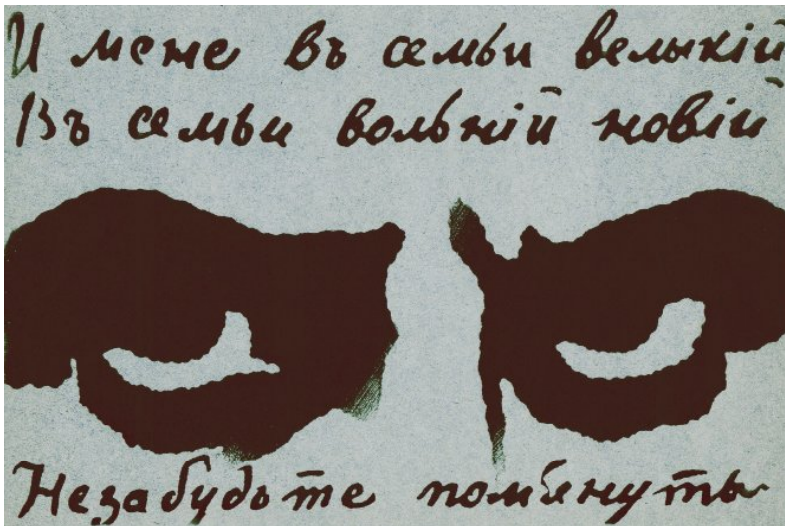 И мене въ семьи велыкій
Въ семьи вольній новій
Незабудьте помʼянуты